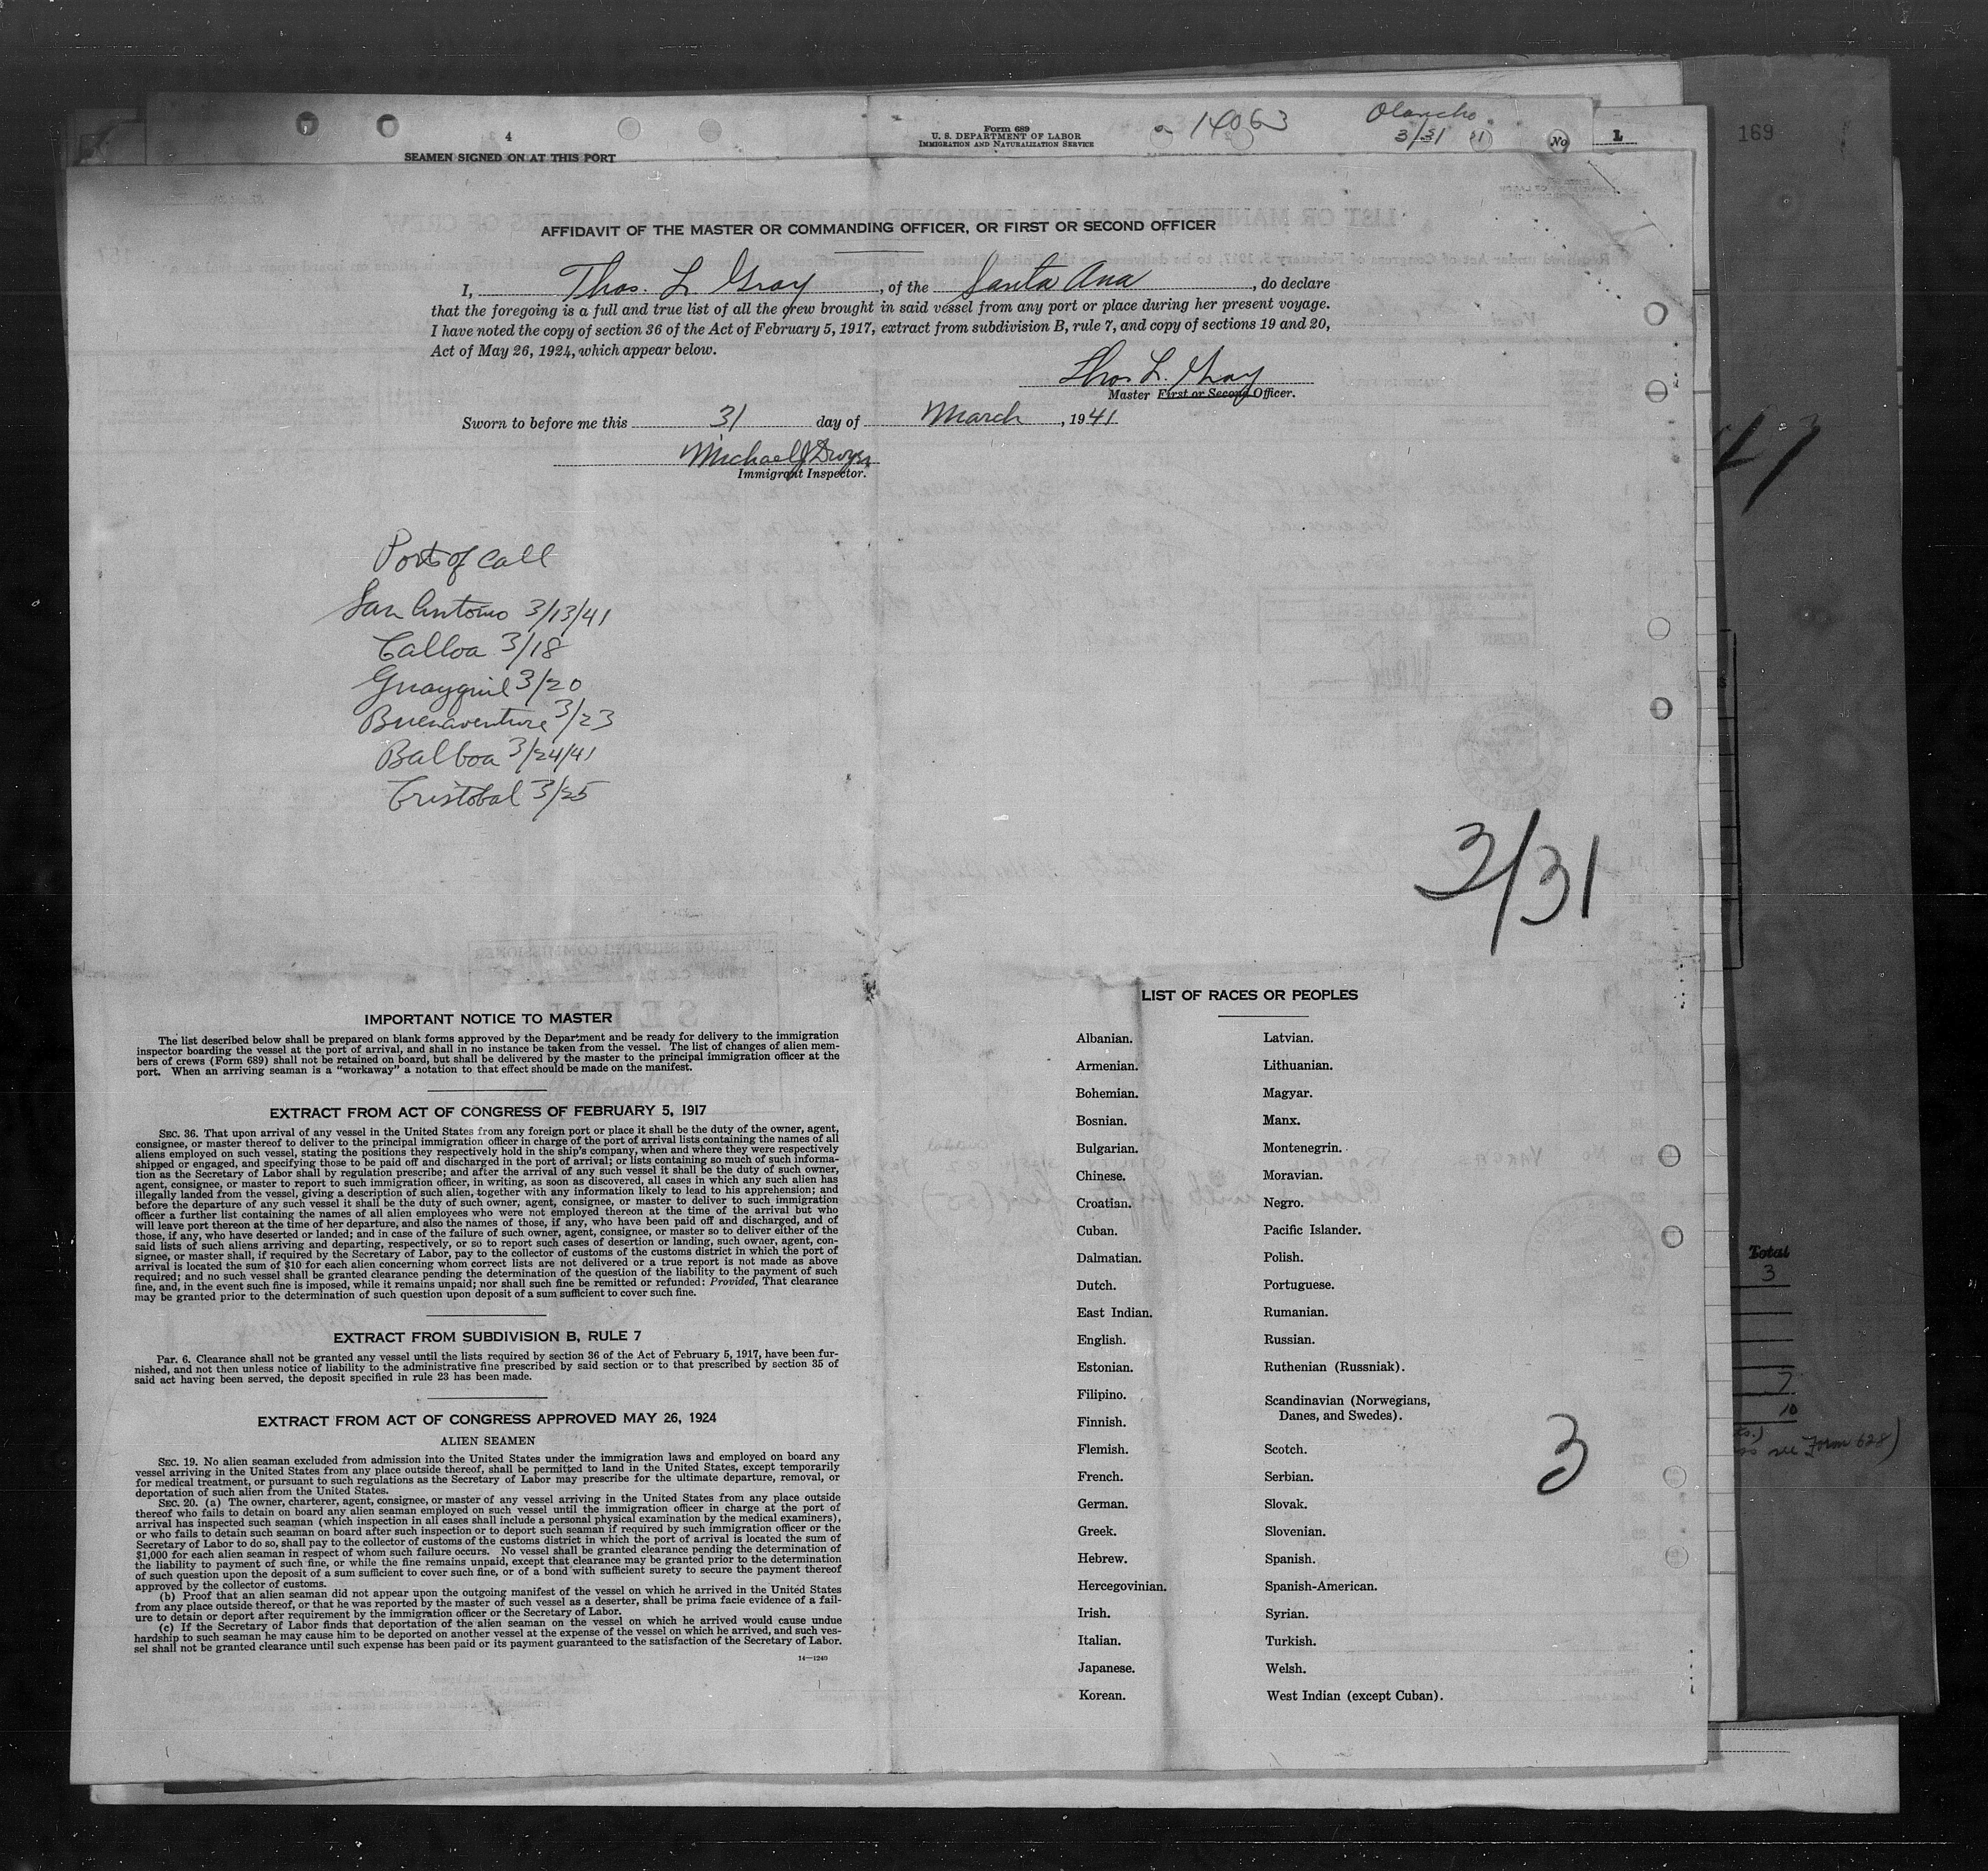 4
SEAMEN SIGNED ON AT THIS PORT
Form 689
U. S. DEPARTMENT OF LABOR
IMMIGRATION AND NATURALIZATION SERVICE
14063
Olancho
3/31
No
L
169
AFFIDAVIT OF THE MASTER OR COMMANDING OFFICER, OR FIRST OR SECOND OFFICER
I, Thos. L. Gray, of the Santa Ana, do declare
that the foregoing is a full and true list of all the crew brought in said vessel from any port or place during her present voyage.
I have noted the copy of section 36 of the Act of February 5, 1917, extract from subdivision B, rule 7, and copy of sections 19 and 20,
Act of May 26, 1924, which appear below.
Thos L. Gray
Master First or Second Officer.
Sworn to before me this 31 day of March, 1941
Michael J Dwyer
Immigrant Inspector.
47
Ports of Call
San Antonio 3/13/41
Calloa 3/18
Guayquil 3/20
Buenaventure 3/23
Balboa 3/24/41
Cristobal 3/25
3/31
IMPORTANT NOTICE TO MASTER
The list described below shall be prepared on blank forms approved by the Department and be ready for delivery to the immigration
inspector boarding the vessel at the port of arrival, and shall in no instance be taken from the vessel. The list of changes of alien mem-
bers of crews (Form 689) shall not be retained on board, but shall be delivered by the master to the principal immigration officer at the
port. When an arriving seaman is a "workaway" a notation to that effect should be made on the manifest.
EXTRACT FROM ACT OF CONGRESS OF FEBRUARY 5, 1917
SEC. 36. That upon arrival of any vessel in the United States from any foreign port or place it shall be the duty of the owner, agent,
consignee, or master thereof to deliver to the principal immigration officer in charge of the port of arrival lists containing the names of all
aliens employed on such vessel, stating the positions they respectively hold in the ship's company, when and where they were respectively
shipped or engaged, and specifying those to be paid off and discharged in the port of arrival; or lists containing so much of such informa-
tion as the Secretary of Labor shall by regulation prescribe; and after the arrival of any such vessel it shall be the duty of such owner,
agent, consignee, or master to report to such immigration officer, in writing, as soon as discovered, all cases in which any such alien has
illegally landed from the vessel, giving a description of such alien, together with any information likely to lead to his apprehension; and
before the departure of any such vessel it shall be the duty of such owner, agent, consignee, or master to deliver to such immigration
officer a further list containing the names of all alien employees who were not employed thereon at the time of the arrival but who
will leave port thereon at the time of her departure, and also the names of those, if any, who have been paid off and discharged, and of
those, if any, who have deserted or landed; and in case of the failure of such owner, agent, consignee, or master so to deliver either of the
said lists of such aliens arriving and departing, respectively, or so to report such cases of desertion or landing, such owner, agent, con-
signee, or master shall, if required by the Secretary of Labor, pay to the collector of customs of the customs district in which the port of
arrival is located the sum of $10 for each alien concerning whom correct lists are not delivered or a true report is not made as above
required; and no such vessel shall be granted clearance pending the determination of the question of the liability to the payment of such
fine, and, in the event such fine is imposed, while it remains unpaid; nor shall such fine be remitted or refunded: Provided, That clearance
may be granted prior to the determination of such question upon deposit of a sum sufficient to cover such fine.
EXTRACT FROM SUBDIVISION B, RULE 7
Par. 6. Clearance shall not be granted any vessel until the lists required by section 36 of the Act of February 5, 1917, have been fur-
nished, and not then unless notice of liability to the administrative fine prescribed by said section or to that prescribed by section 35 of
said act having been served, the deposit specified in rule 23 has been made.
EXTRACT FROM ACT OF CONGRESS APPROVED MAY 26, 1924
ALIEN SEAMEN
SEC. 19. No alien seaman excluded from admission into the United States under the immigration laws and employed on board any
vessel arriving in the United States from any place outside thereof, shall be permitted to land in the United States, except temporarily
for medical treatment, or pursuant to such regulations as the Secretary of Labor may prescribe for the ultimate departure, removal, or
deportation of such alien from the United States.
SEC. 20. (a) The owner, charterer, agent, consignee, or master of any vessel arriving in the United States from any place outside
thereof who fails to detain on board any alien seaman employed on such vessel until the immigration officer in charge at the port of
arrival has inspected such seaman (which inspection in all cases shall include a personal physical examination by the medical examiners),
or who fails to detain such seaman on board after such inspection or to deport such seaman if required by such immigration officer or the
Secretary of Labor to do so, shall pay to the collector of customs of the customs district in which the port of arrival is located the sum of
$1,000 for each alien seaman in respect of whom such failure occurs. No vessel shall be granted clearance pending the determination of
the liability to payment of such fine, or while the fine remains unpaid, except that clearance may be granted prior to the determination
of such question upon the deposit of a sum sufficient to cover such fine, or of a bond with sufficient surety to secure the payment thereof
approved by the collector of customs.
(b) Proof that an alien seaman did not appear upon the outgoing manifest of the vessel on which he arrived in the United States
from any place outside thereof, or that he was reported by the master of such vessel as a deserter, shall be prima facie evidence of a fail-
ure to detain or deport after requirement by the immigration officer or the Secretary of Labor.
(c) If the Secretary of Labor finds that deportation of the alien seaman on the vessel on which he arrived would cause undue
hardship to such seaman he may cause him to be deported on another vessel at the expense of the vessel on which he arrived, and such ves-
sel shall not be granted clearance until such expense has been paid or its payment guaranteed to the satisfaction of the Secretary of Labor.
14—1240
LIST OF RACES OR PEOPLES
Albanian.
Armenian.
Bohemian.
Bosnian.
Bulgarian.
Chinese.
Croatian.
Cuban.
Dalmatian.
Dutch.
East Indian.
English.
Estonian.
Filipino.
Finnish.
Flemish.
French.
German.
Greek.
Hebrew.
Hercegovinian.
Irish.
Italian.
Japanese.
Korean.
Latvian.
Lithuanian.
Magyar.
Manx.
Montenegrin.
Moravian.
Negro.
Pacific Islander.
Polish.
Portuguese.
Rumanian.
Russian.
Ruthenian (Russniak).
Scandinavian (Norwegians,
Danes, and Swedes).
Scotch.
Serbian.
Slovak.
Slovenian.
Spanish.
Spanish-American.
Syrian.
Turkish.
Welsh.
West Indian (except Cuban).
3
Total
3
7
10
see Form 628)